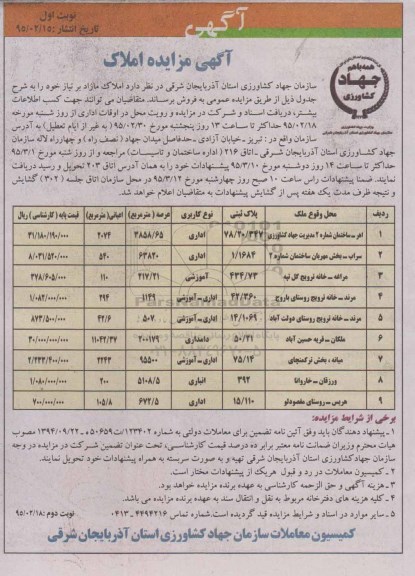 نوبت اول
تاریخ انتشار : ۹۵/۰۲/۱۵
آگهی
همه با هم
جهاد
کشاورزی
آگهی مزایده املاک
سازمان جهاد کشاورزی استان آذربایجان شرقی در نظر دارد املاک مازاد بر نیاز خود را به شرح
جدول ذیل از طریق مزایده عمومی به فروش برساند. متقاضیان می توانند جهت کسب اطلاعات
بیشتر، دریافت اسناد و شرکت در مزایده و رویت محل در اوقات اداری از روز شنبه مورخه
۹۵/۰۲/۱۸ حداکثر تا ساعت ۱۳ روز پنجشنبه مورخ ۹۵/۰۲/۳۰ (به غیر از ایام تعطیل) به آدرس
سازمان واقع در : تبریز ـ خیابان آزادی ـ حدفاصل میدان جهاد ( نصف راه ) و چهارراه لاله سازمان
جهاد کشاورزی استان آذربایجان شرقی ـ اتاق ۲۱۶ ( اداره ساختمان و تاسیسات) مراجعه و از روز شنبه مورخ ۹۵/۳/۱
حداکثر تا ساعت ۱۴ روز دوشنبه مورخ ۹۵/۳/۱۰ پیشنهادات خود را به همان آدرس اتاق ۲۰۳ تحویل و رسید دریافت
نمایند. ضمنا پیشنهادات راس ساعت ۱۰ صبح روز چهارشنبه مورخ ۹۵/۳/۱۲ در محل سازمان اتاق جلسه (۳۰۲) گشایش
و نتیجه ظرف مدت یک هفته پس از گشایش پیشنهادات به متقاضیان اعلام خواهد شد.
ردیف محل وقوع ملک پلاک ثبتی نوع کاربری عرصه ( مترمربع) اعیانی( مترمربع) قیمت پایه ( کارشناسی ) ریال
۱ اهر ـ ساختمان شماره ۲ مدیریت جهاد کشاورزی ۷۸/۲۰/۳۴۷ اداری ۳۸۵۸/۶۵ ۲۰۷۴ ۳۱/۱۸۰/۱۹۰/۰۰۰
۲ سراب ـ بخش مهربان ساختمان شماره ۲ ۱/۱۶۸۴ اداری ۶۳۸۲۰ ۵۴۰ ۸/۰۳۱/۵۲۰/۰۰۰
۳ مراغه ـ خانه ترویج گل تپه ۴۳۴/۷۳ آموزشی ۲۱۷/۲۱ ۱۱۰ ۳۷۸/۶۰۵/۰۰۰
۴ مرند ـ خانه ترویج روستای یاروج ۴۲/۲۶۰ اداری ـ آموزشی ۱۱۴۹ ۲۹۴ ۱/۰۸۲/۰۰۰/۰۰۰
۵ مرند ـ خانه ترویج روستای دولت آباد ۱۴/۱۰۶۹ اداری ـ آموزشی ۵۰۷ ۴۲/۶ ۸۷۳/۵۰۰/۰۰۰
۶ ملکان ـ قریه حسین آباد ۵۰/۲۱ دامداری ۲۰۰۱۷۹ ۱۱۰۴۲/۳۷ ۳۰/۰۰۰/۰۰۰/۰۰۰
۷ میانه ، بخش ترکمنچای ۷۵/۱۴ اداری ـ آموزشی ۹۵۵۰۰ ۲۲۴۳ ۲/۴۳۳/۴۰۰/۰۰۰
۸ ورزقان ـ خاروانا ۳۹۲ انباری ۵۱۰۸/۵ ۲۰۰ ۱/۰۸۰/۰۰۰/۰۰۰
۹ هریس ـ روستای مقصودلو ۱۵/۱۱۰ اداری ۶۷۲/۵ ۱۰۵/۸ ۷۰۰/۰۰۰/۰۰۰
برخی از شرایط مزایده:
۱ ـ پیشنهاد دهندگان باید وفق آئین نامه تضمین برای معاملات دولتی به شماره ۱۲۳۴۰۲/ت۵۰۶۵۹ه ـ ۱۳۹۴/۰۹/۲۲ مصوب
هیات محترم وزیران ضمانت نامه معتبر برابر ده درصد قیمت کارشناسی، تحت عنوان تضمین شرکت در مزایده در وجه
سازمان جهاد کشاورزی استان آذربایجان شرقی تهیه و به صورت سربسته به همراه پیشنهادات خود تحویل نمایند.
۲ ـ کمیسیون معاملات در رد و قبول هریک از پیشنهادات مختار است.
۳ ـ هزینه آگهی و حق الزحمه کارشناسی به عهده برنده مزایده خواهد بود.
۴ ـ کلیه هزینه های دفترخانه مربوط به نقل و انتقال سند به عهده برنده مزایده می باشد.
۵ ـ سایر موارد در اسناد و شرایط مزایده قید گردیده است. شماره تماس ۴۴۹۴۲۱۶ ـ ۰۴۱۳
نوبت دوم :۹۵/۰۲/۱۸
کمیسیون معاملات سازمان جهاد کشاورزی استان آذربایجان شرقی